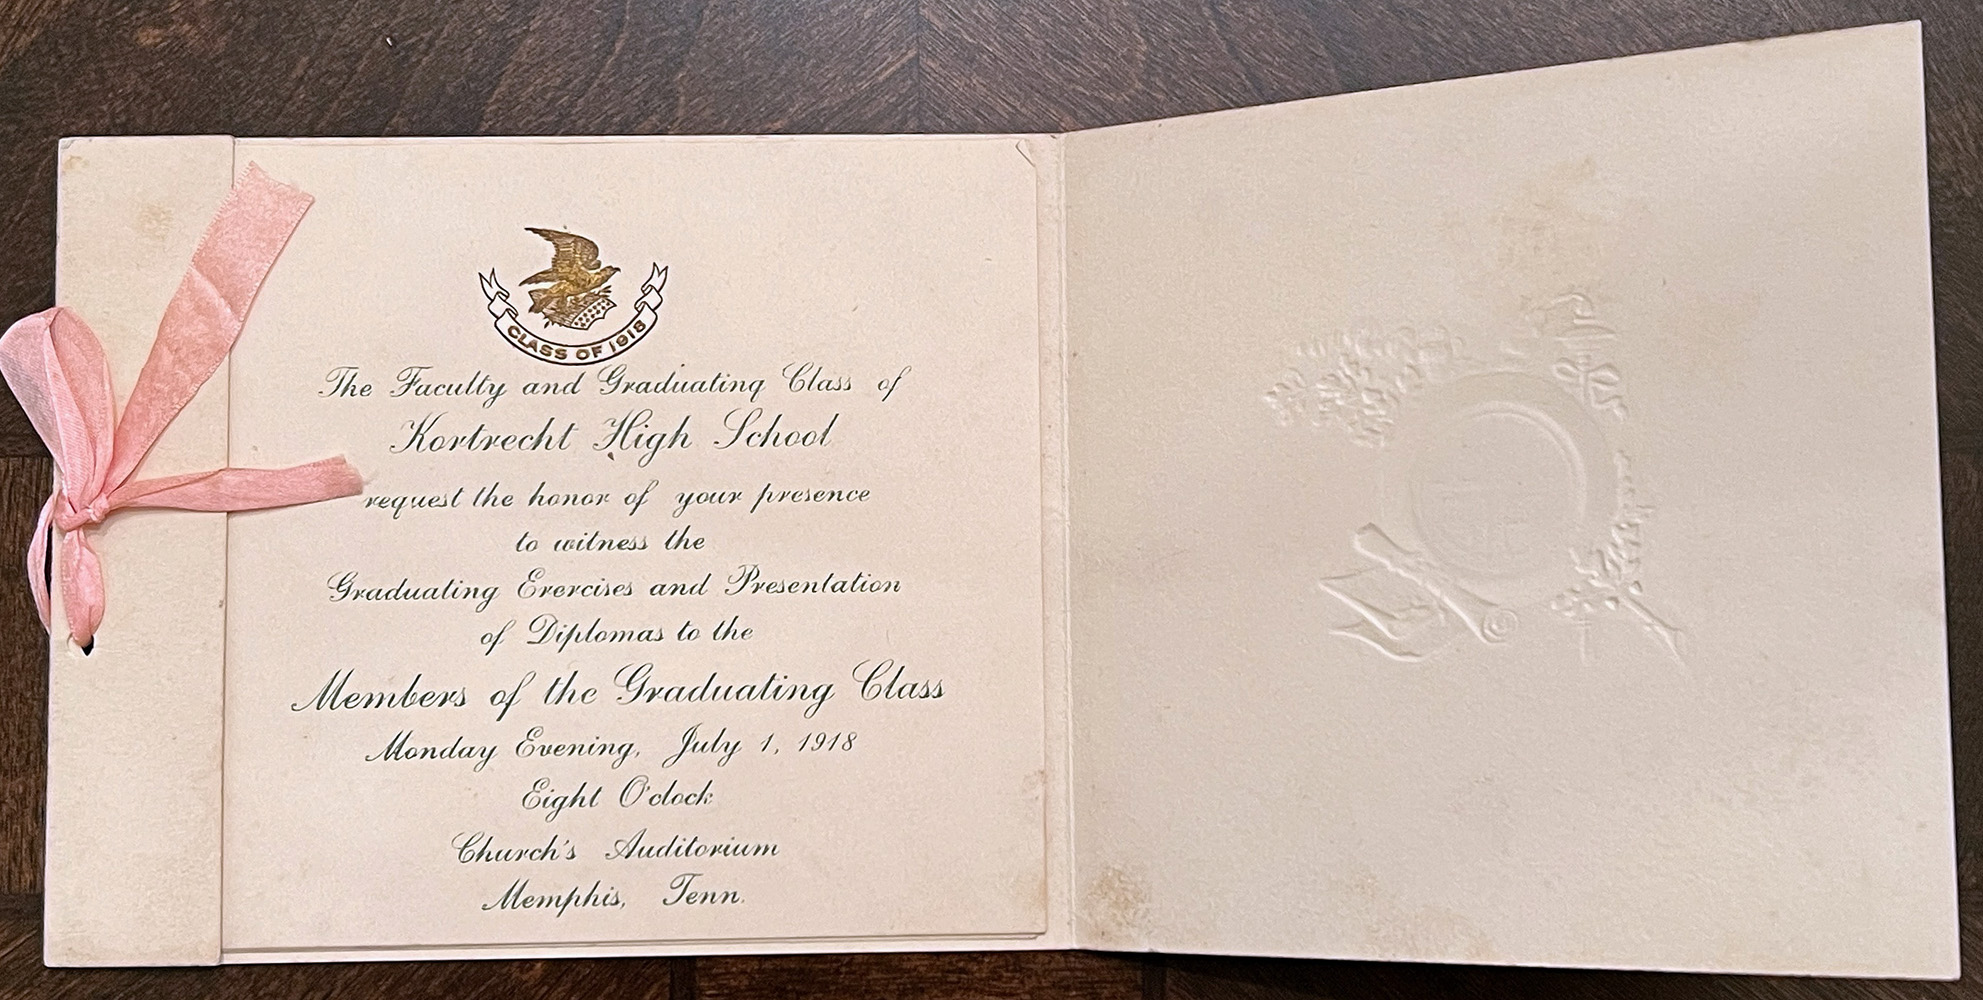 CLASS OF 1918
The Faculty and Graduating Class of
Kortrecht High School
request the honor of your presence
to witness the
Graduating Exercises and Presentation
of Diplomas to the
Members of the Graduating Class
Monday Evening, July 1, 1918
Eight O'clock
Church's Auditorium
Memphis, Tenn.